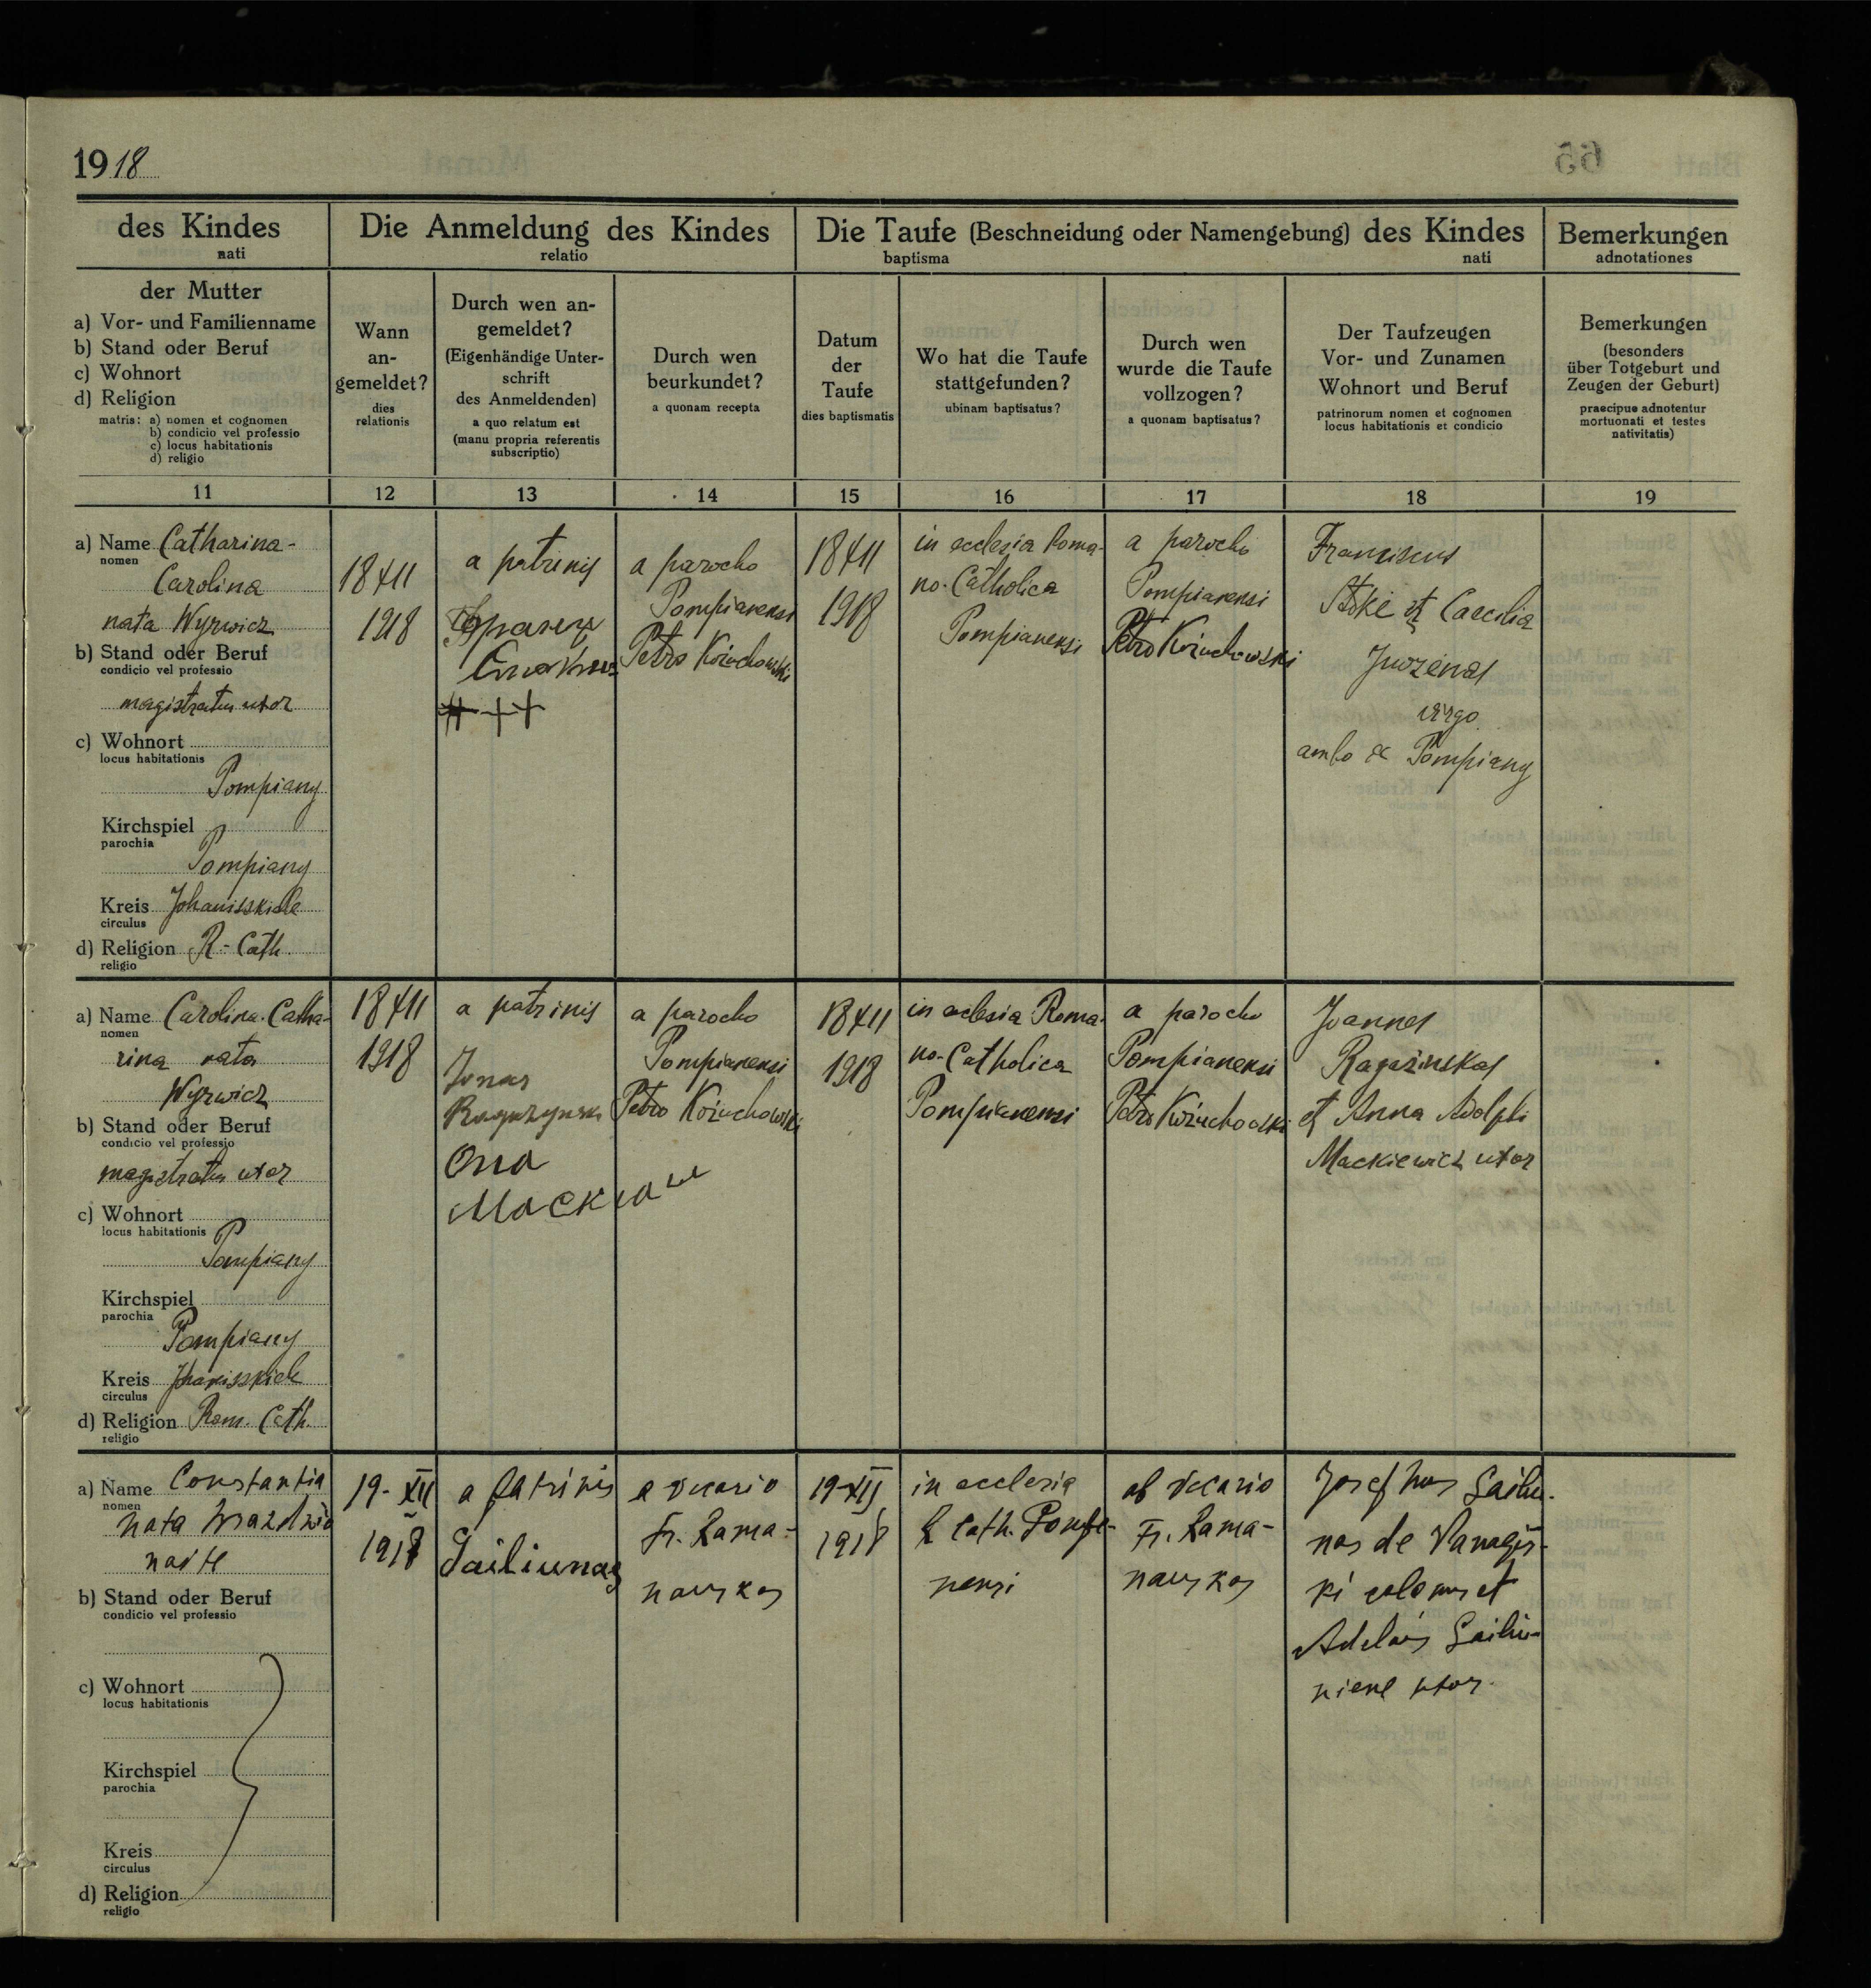 1918
des Kindes
nati
Die Anmeldung des Kindes
relatio
Die Taufe (Beschneidung oder Namengebung) des Kindes
baptisma nati
Bemerkungen
adnotationes
der Mutter
a) Vor- und Familienname
b) Stand oder Beruf
c) Wohnort
d) Religion
matris: a) nomen et cognomen
b) condicio vel professio
c) locus habitationis
d) religio
Wann
an-
gemeldet?
dies
relationis
Durch wen an-
gemeldet?
(Eigenhändige Unter-
schrift
des Anmeldenden)
a quo relatum est
(manu propria referentis
subscriptio)
Durch wen
beurkundet?
a quonam recepta
Datum
der
Taufe
dies baptismatis
Wo hat die Taufe
stattgefunden?
ubinam baptisatus?
Durch wen
wurde die Taufe
vollzogen?
a quonam baptisatus?
Der Taufzeugen
Vor- und Zunamen
Wohnort und Beruf
patrinorum nomen et cognomen
locus habitationis et condicio
Bemerkungen
(besonders
über Totgeburt und
Zeugen der Geburt)
praecipue adnotentur
mortuonati et testes
nativitatis)
11 12 13 14 15 16 17 18 19
a) Name Catharina-
nomen
Carolina
nata Wyrwicz
b) Stand oder Beruf
condicio vel professio
magistratus uxor
c) Wohnort
locus habitationis
Pompiany
Kirchspiel
parochia
Pompiany
Kreis Johanisskiele
circulus
d) Religion R-Cath.
religio
18 XII
1918
a patrinis
+++
a parocho
Pompianensi
Petro Koziuchowski
18 XII
1918
in ecclesia Roma-
no-Catholica
Pompianensi
a parocho
Pompianensi
Petro Koziuchowski
Franciscus
et Caecilia
Juozenas
virgo
ambo ex Pompiany
a) Name Carolina-Catha-
nomen
rina nata
Wyrwicz
b) Stand oder Beruf
condicio vel professio
magistratus uxor
c) Wohnort
locus habitationis
Pompiany
Kirchspiel
parochia
Pompiany
Kreis
circulus
d) Religion Rom. Cath.
religio
18 XII
1918
a patrinis
Jonas
Ona
a parocho
Pompianensi
Petro Koziuchowski
18 XII
1918
in eclesia Roma-
no-Catholica
Pompianensi
a parocho
Pompianensi
Petro Koziuchowski
Joannes
Ragažinskas
et Anna Adolphi
Mackiewicz uxor
a) Name Constantia
nomen
nata
naite
b) Stand oder Beruf
condicio vel professio
c) Wohnort
locus habitationis
Kirchspiel
parochia
Kreis
circulus
d) Religion
religio
19-XII
1918
a patrinis
Gailiunas
a vicario
Fr. Rama-
nauskas
19-XII
1918
in ecclesia
R Cath. Pompe-
nensi
ab vicario
Fr. Rama-
nauskas
Josephus Gailiu-
nas de
et
Gailiu-
niene uxor.